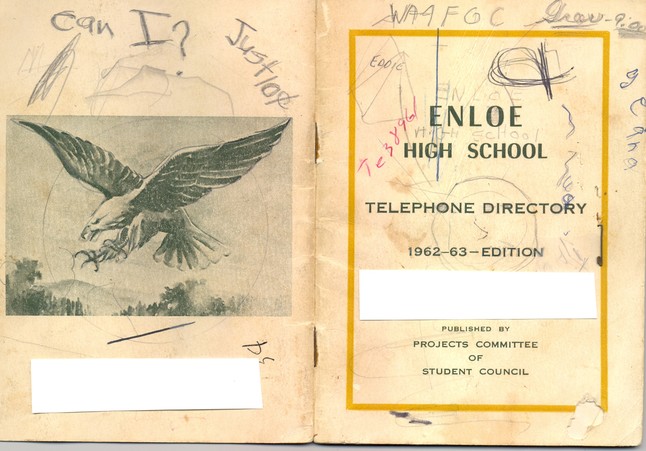 Can I?
Justice
WA4FGC
EDDIE
ENLOE
HIGH SCHOOL
ENLOE
HIGH SCHOOL
TELEPHONE DIRECTORY
1962-63-EDITION
PUBLISHED BY
PROJECTS COMMITTEE
OF
STUDENT COUNCIL